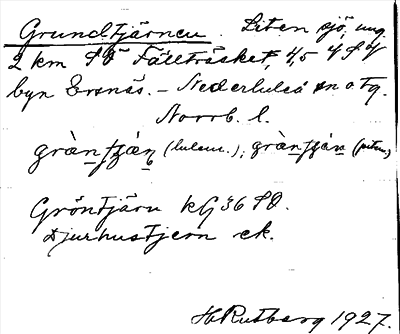 Grundtjärnen. Liten sjö, ung.
2 km SO Fällträsket, 4,5
byn Ersnäs. – Nederluleå sn o tg.
Norrb. l.
(lulem.); (pitem.)
Gröntjärn kG 36 SO.
Djurhustjern ek.
H. Rutberg 1927.